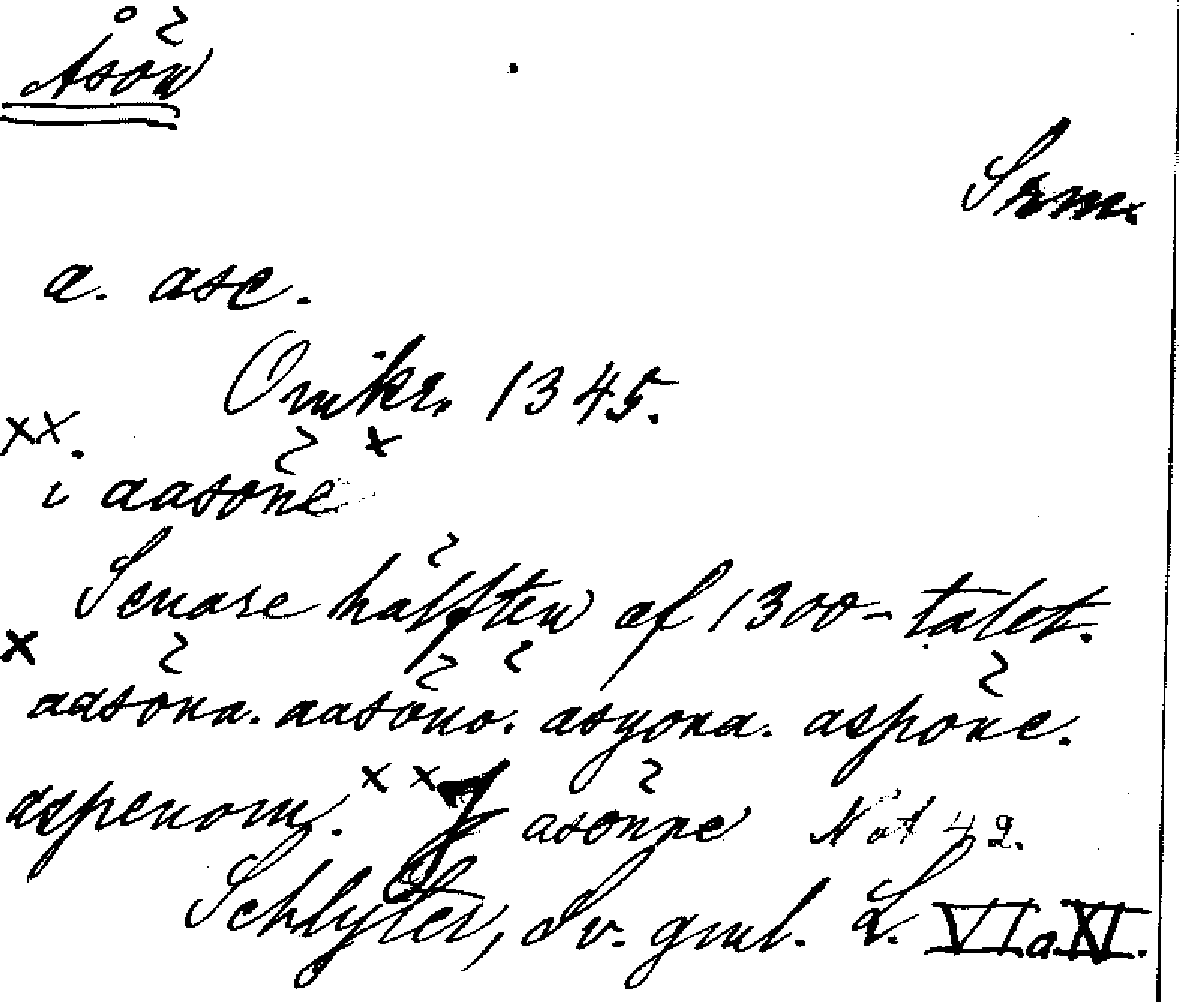 Åsön
Srm.
a. asc.
Omkr. 1345.
xx.
i aasöne x
Senare hälften af 1300-talet.
x aasöna. aasöno. asyöna. aspöne.
aspenom. xx asönne Not 42.
Schlyter, Sv. gml. L. VI a XI.